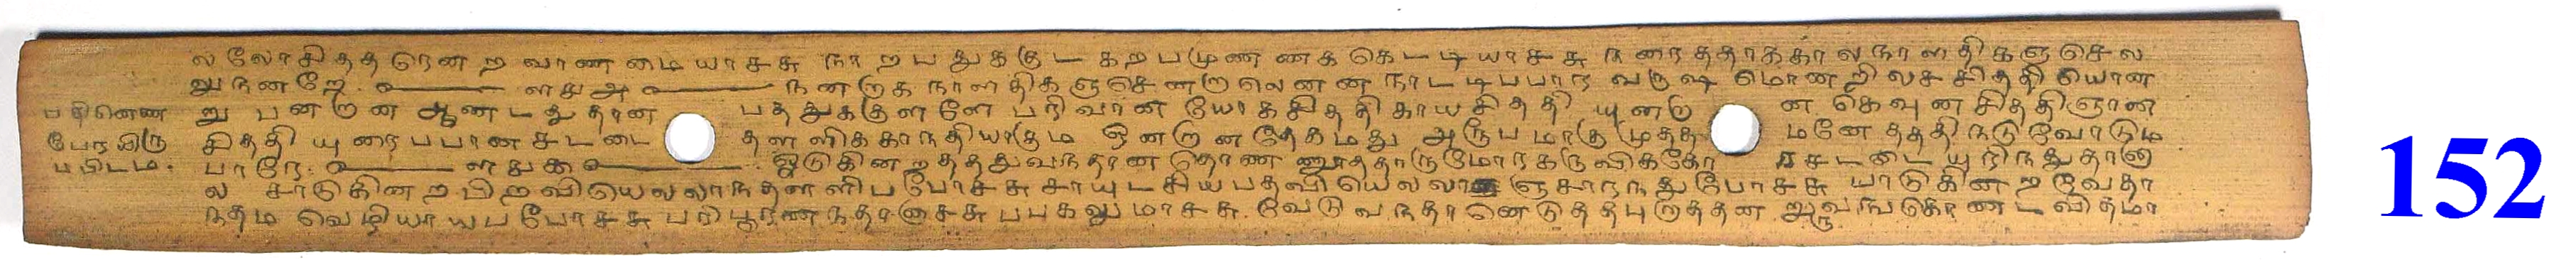 ல லோசிதத ரென ற வாண மை யாசசு நா ற ப துககுட கறபமுண ணக கெடடி யாசசு நனரை ததாககால நாளதிகளு செல
லுநனறே. ளகுஅ நனறாக நாளதிகளு செனறாலெனன நாடடிபபார வருஷ மொணறிலச சிததி யொன
பதினெண று பனறான ஆண டதுதான பததுககுளளே பரிவான யோகசிததி காயசிததி யுனறா ன கெவுன சிததிஞான
பேரயிரு சிததி யுரைபபான சடடை தளளிககாநதியாகும ஒனறான தேகமது அரூபமாகு முதத மனே தததிநடுவோடும
பயிடம. பாரே. ளகுகூ ஓடுகினற தததுவநதான தொண ணூததாருமோர கருவிககோ சசடடையுரிநதுதானு
ல சாடுகினற பிறவியெலலாந தளளிப போசசு சாயுடசிய பதவி யெலலாஞ சாரநதுபோசசு யாடுகினற வேதா
நதம வெழியாயப போசசு பரிபூரண நதானாசசு பபுகலுமாசசு. வேடுவநதா னெடுததபுறுததன றூவங கொணட விதமா
152